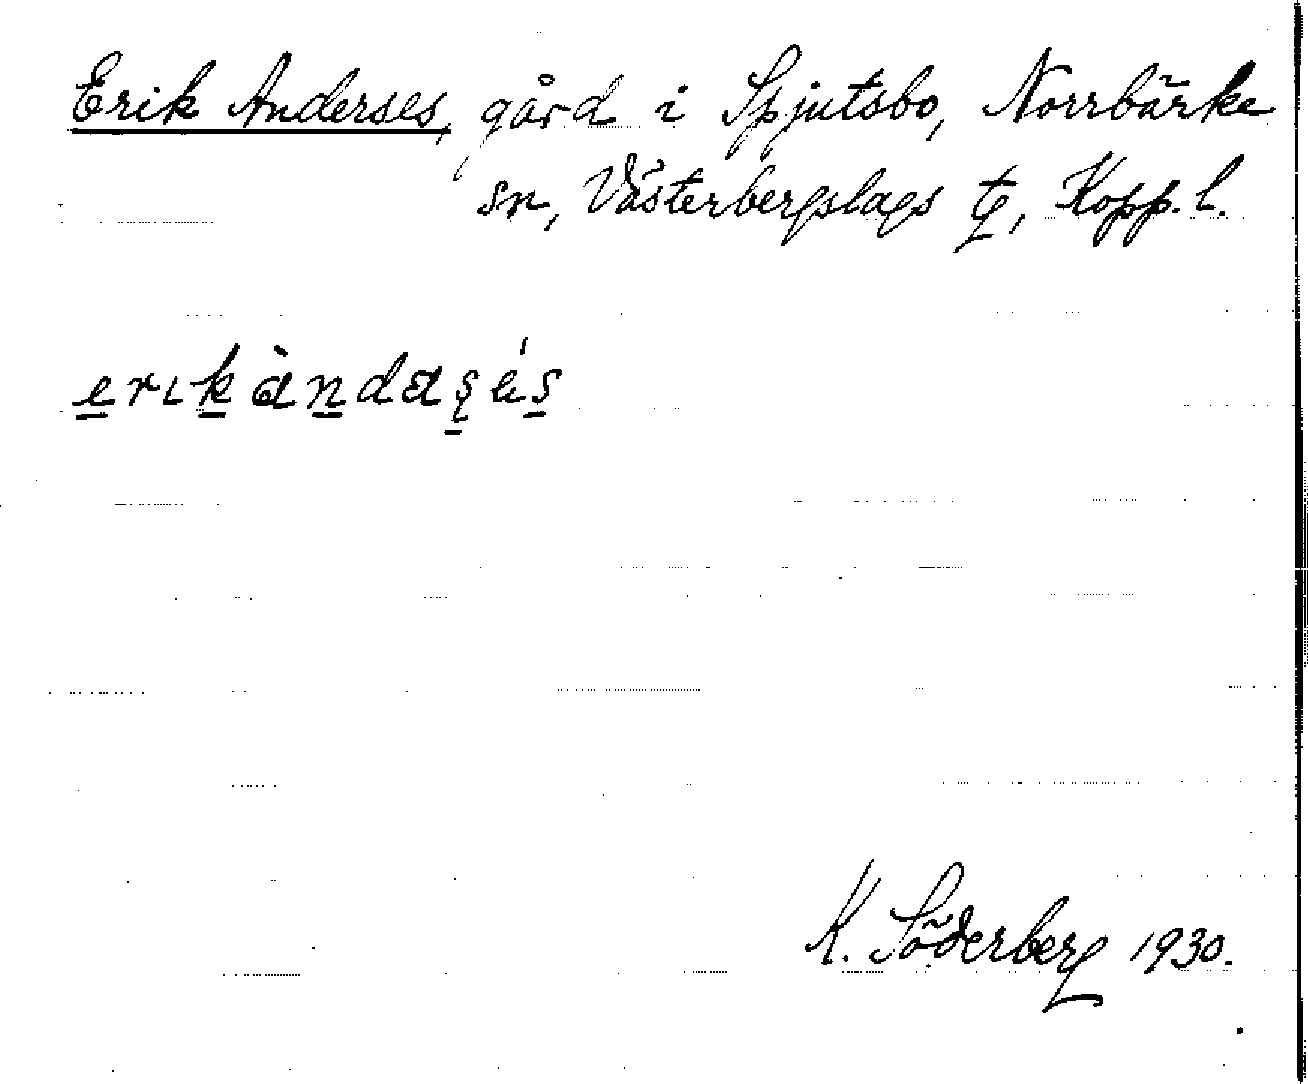 Erik Anderses, gård i Spjutsbo, Norrbärke
sn, Västerbergslags tg, Kopp. l.
erɩkàndaʂés
K. Söderberg 1930.